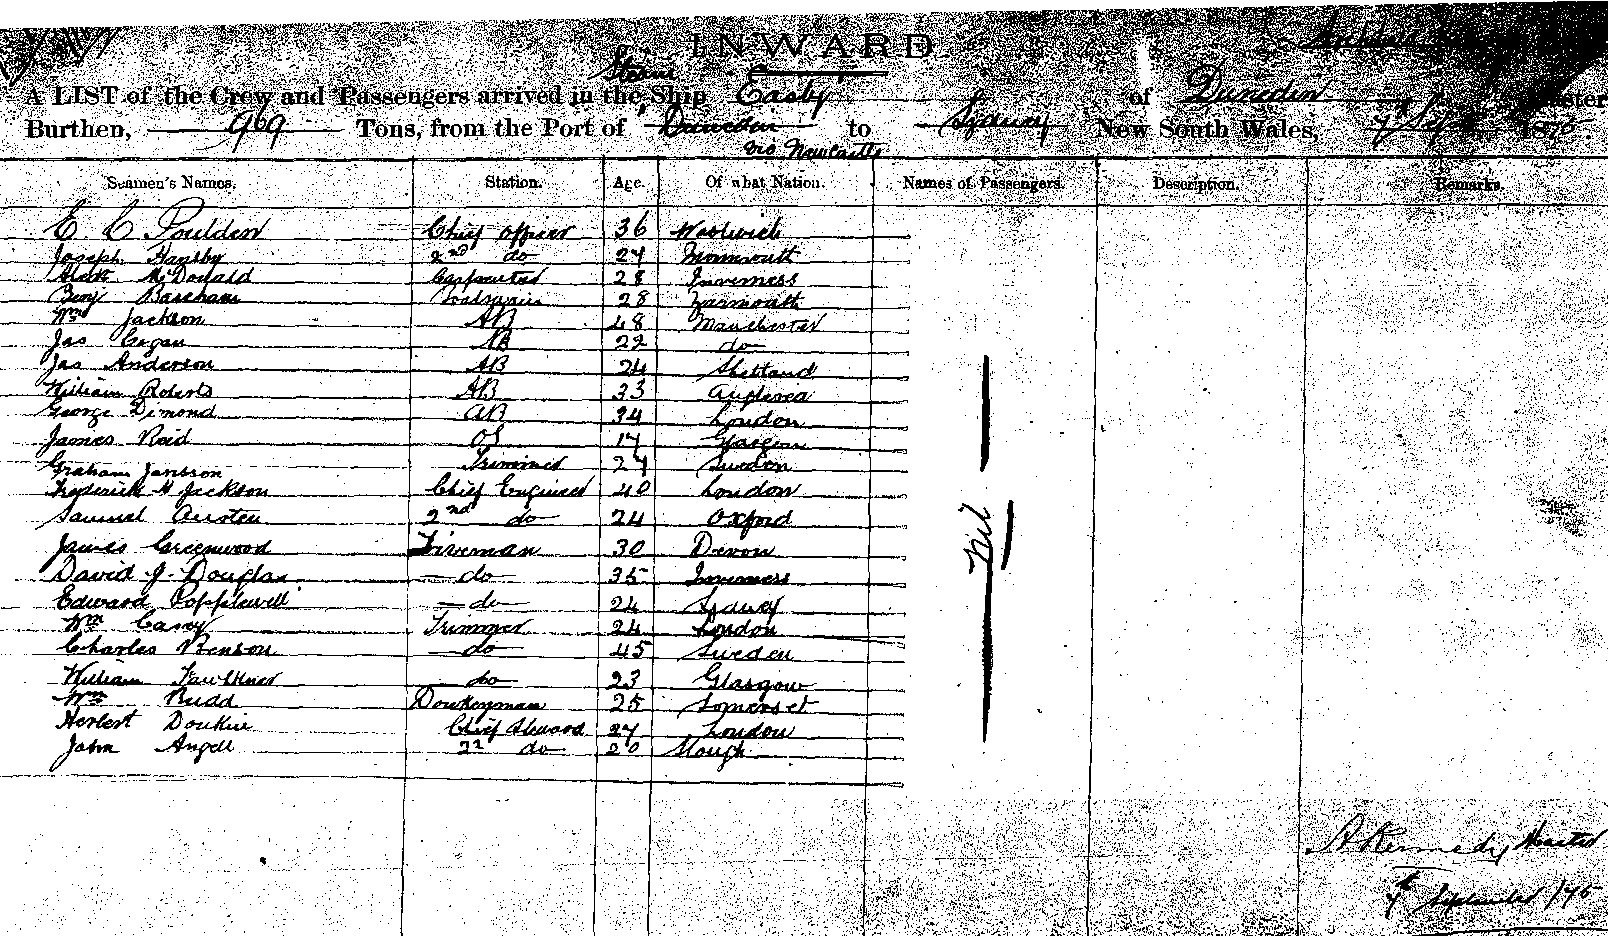 INWARD.
Steam
A LIST of the Crew and Passengers arrived in the Ship Easby of Dunedin
Burthen, 969 Tons, from the Port of Dunedin to Sydney New South Wales, 7 Sept 1875
via Newcastle
Seamen's Names. Station. Age. Of what Nation. Names of Passengers. Description. Remarks.
E C Poulden Chief Officer 36 Woolwich
Joseph Hansby 2nd do 27 Monmouth
McDonald Carpenter 28 Inverness
Benj Barcham 28 Yarmouth
Wm Jackson AB 48 Manchester
Jas Eagan AB 22 do
Jas Anderson AB 24 Shetland
William Roberts AB 33 Anglesea
George Dimond AB 34 London
James Reid OS 17 Glasgow
Graham Jansson Trimmer 27 Sweden
Frederick H Jackson Chief Engineer 40 London
Samuel Austen 2nd do 24 Oxford
Nil
James Greenwood Fireman 30 Devon
David J. Douglas do 35 Inverness
Edward Popplewell do 24 Sydney
Wm Casey Trimmer 24 London
Charles Benson do 45 Sweden
William Faulkner do 23 Glasgow
Wm Rudd Donkeyman 25 Somerset
Herbert Donkin Chief Steward 27 London
John Angell 2nd do 20 Slough
A Kennedy Master
7th September /75